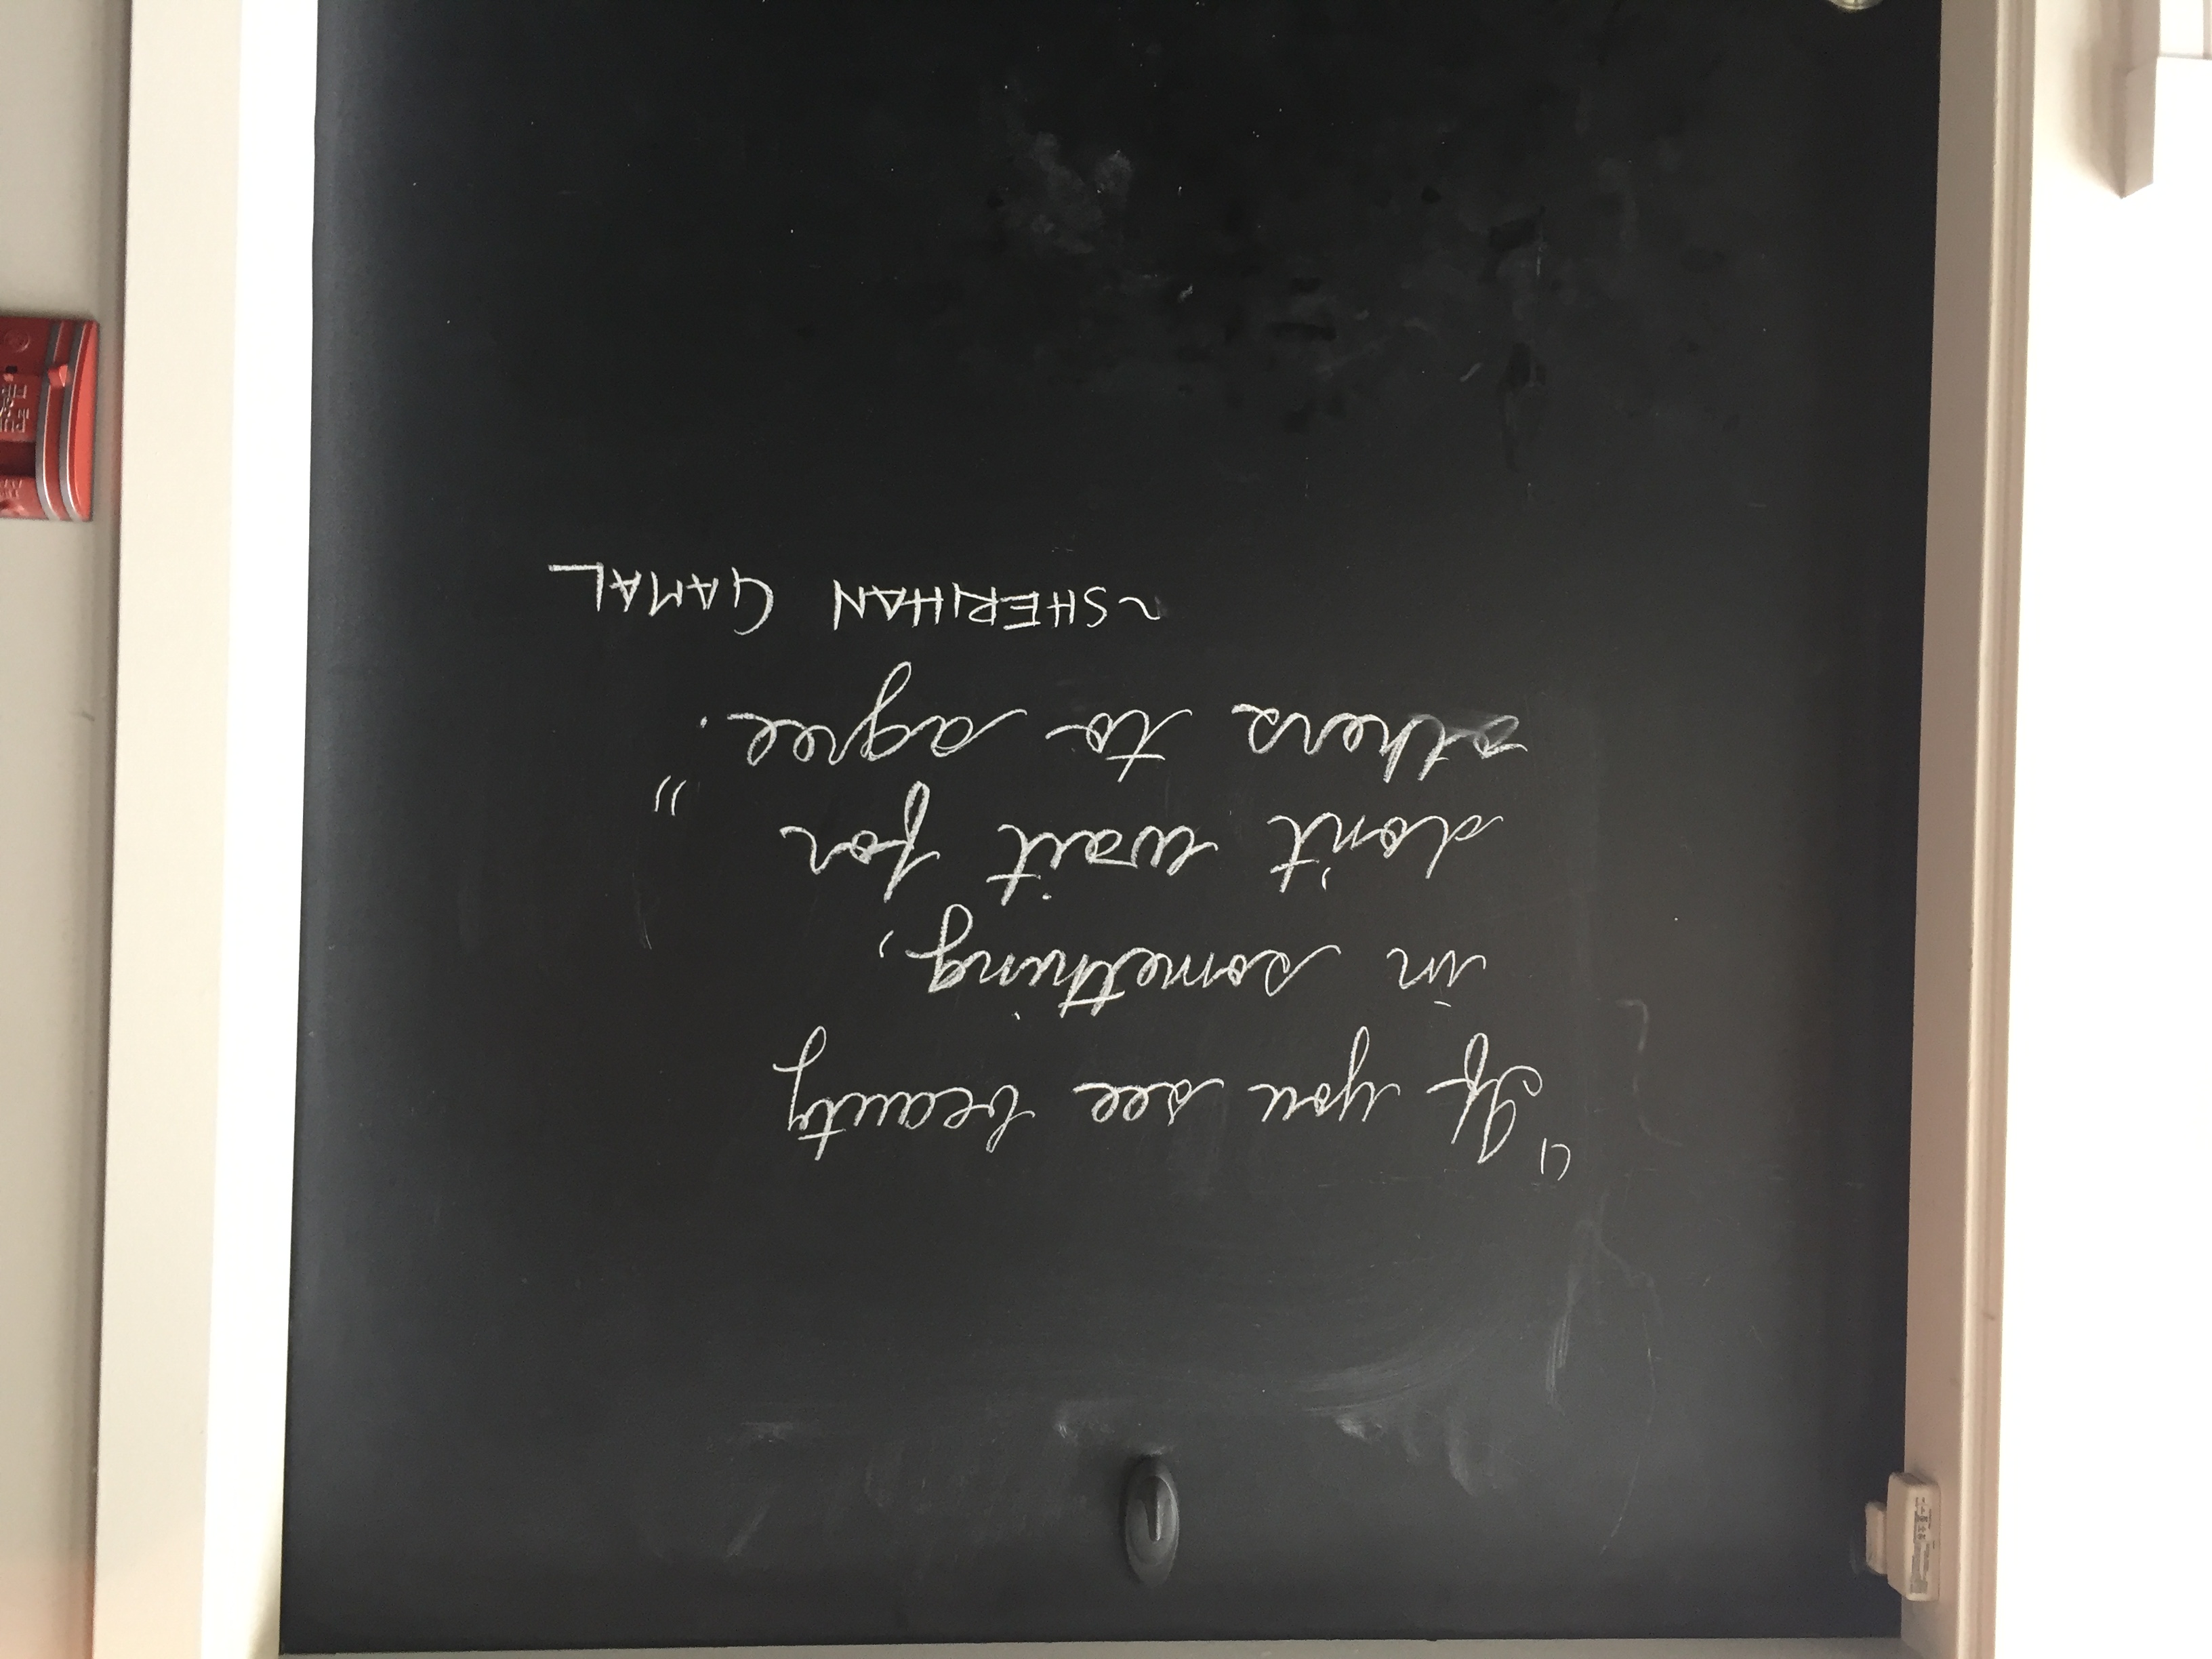 "If you see beauty
in something,
don't wait for
others to agree."
~SHERIHAN GAMAL